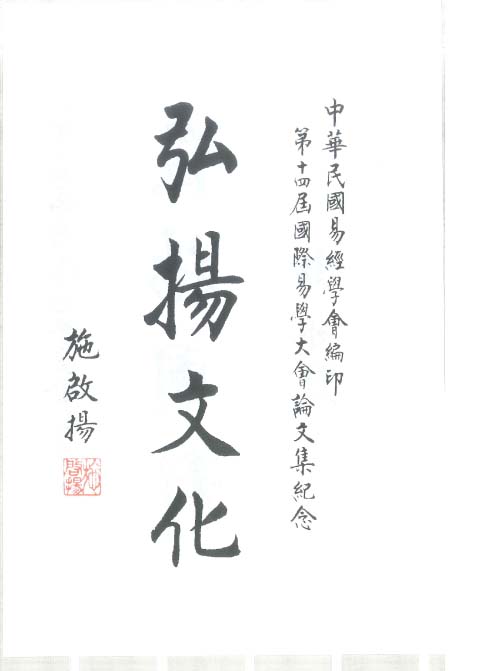 中華民國易經學會編印
第十四屆國際易學大會論文集紀念
弘揚文化
施啟揚
施啟揚